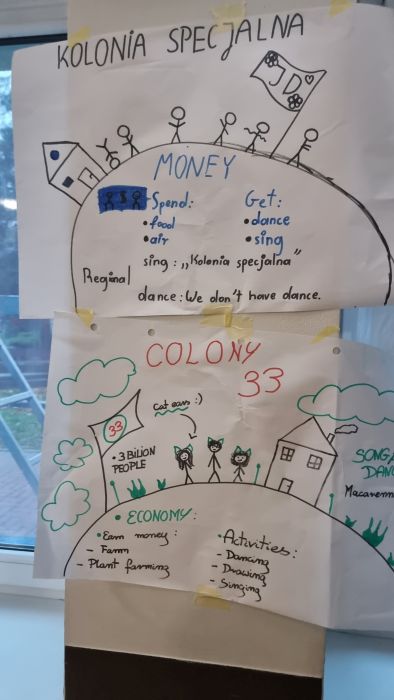 KOLONIA SPECJALNA
JD♡
MONEY
$
Spend:
• food
• air
Get:
• dance
• sing
Reginal
sing: „Kolonia specjalna"
dance: We don't have dance.
COLONY
33
cat ears :)
33
• 3 BILION
PEOPLE
SONG/
DAN
Macaren
• ECONOMY:
• Earn money:
- Farm
- Plant farming
• Activities:
- Dancing
- Drawing
- Singing